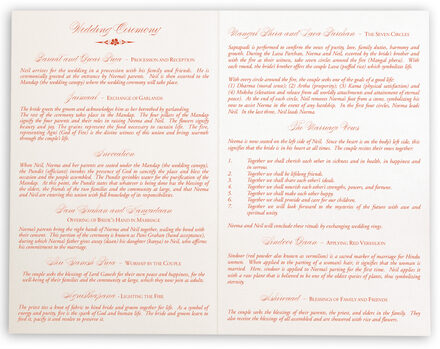 Wedding Ceremony
Baraat and Dwar Puja – PROCESSION AND RECEPTION
Neil arrives for the wedding in a procession with his family and friends. He is
ceremonially greeted at the entrance by Neema's parents. Neil is then escorted to the
Mandap (the wedding canopy) where the wedding ceremony will take place.
Jaimaal – EXCHANGE OF GARLANDS
The bride greets the groom and acknowledges him as her betrothed by garlanding.
The rest of the ceremony takes place in the Mandap. The four pillars of the Mandap
signify the four parents and their roles in raising Neema and Neil. The flowers signify
beauty and joy. The grains represent the food necessary to sustain life. The fire,
representing Agni (God of Fire) is the divine witness of this union and brings warmth
through the couple's life.
Invocation
When Neil, Neema and her parents are seated under the Mandap (the wedding canopy),
the Pundit (officiant) invokes the presence of God to sanctify the place and bless the
occasion and the people assembled. The Pundit sprinkles water for the purification of the
Mandap. At this point, the Pundit states that whatever is being done has the blessing of
the elders, the friends of the two families and the community at large, and that Neema
and Neil are entering this union with full knowledge of its responsibilities.
OFFERING OF BRIDE'S HAND IN MARRIAGE
Neema's parents bring the right hands of Neema and Neil together, sealing the bond with
their consent. This portion of the ceremony is known as Pani Grahan (hand acceptance),
during which Neema's father gives away (daan) his daughter (kanya) to Neil, who affirms
his commitment to the marriage.
WORSHIP BY THE COUPLE
The couple seeks the blessings of Lord Ganesh for their own peace and happiness, for the
well-being of their families and the community at large, which they now join as adults.
LIGHTING THE FIRE
The priest ties a loop of fabric to bind bride and groom together for life. As a symbol of
energy and purity, fire is the spirit of God and human life. The bride and groom learn to
feed it, pacify it and resolve to preserve it.
Mangal Phera and Sapta Padi – THE SEVEN CIRCLES
Saptapadi is performed to confirm the vows of purity, love, family duties, harmony and
growth. During the Laya Parchan, Neema and Neil, escorted by the bride's brother and
with the fire as their witness, take seven circles around the fire (Mangal phera). With
each round, the bride's brother offers the couple Laya (puffed rice) which symbolizes life.
With every circle around the fire, the couple seeks one of the goals of a good life:
(1) Dharma (moral cause); (2) Artha (prosperity); (3) Kama (physical satisfaction) and
(4) Moksha (elevation and release from all worldly attachments and attainment of eternal
peace). At the end of each circle, Neil removes Neema's foot from a stone, symbolizing his
vow to assist Neema in the event of any hardship. In the first four circles, Neema leads
Neil. In the last three, Neil leads Neema.
The Marriage Vows
Neema is now seated on the left side of Neil. Since the heart is on the body's left side, this
signifies that the bride is in his heart at all times. The couple recites their vows together:
1. Together we shall cherish each other in sickness and in health, in happiness and
in sorrow.
2. Together we shall be lifelong friends.
3. Together we shall share each other's ideals.
4. Together we shall nourish each other's strengths, powers, and fortune.
5. Together we shall make each other happy.
6. Together we shall provide and care for our children.
7. Together we will look forward to the mysteries of the future with awe and
spiritual unity.
Neema and Neil will conclude these rituals by exchanging wedding rings.
Sindoor Daan – APPLYING RED VERMILION
Sindoor (red powder also known as vermilion) is a sacred marker of marriage for Hindu
women. When applied in the parting of a woman's hair, it signifies that the woman is
married. Here, sindoor is applied to Neema's parting for the first time. Neil applies it
with a rare plant that is believed to be one of the oldest species of plants, thus symbolizing
eternity.
Ashirvaad – BLESSINGS OF FAMILY AND FRIENDS
The couple seeks the blessings of their parents, the priest, and elders in the family. They
also receive the blessings of all assembled and are showered with rice and flowers.